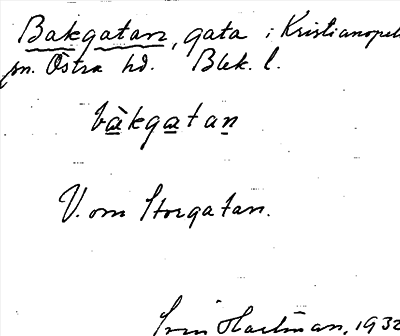 Bakgatan, gata i Kristianopels
sn. Östra hd. Blek. l.
bàkgatan
V. om Storgatan.
Hartman, 1932